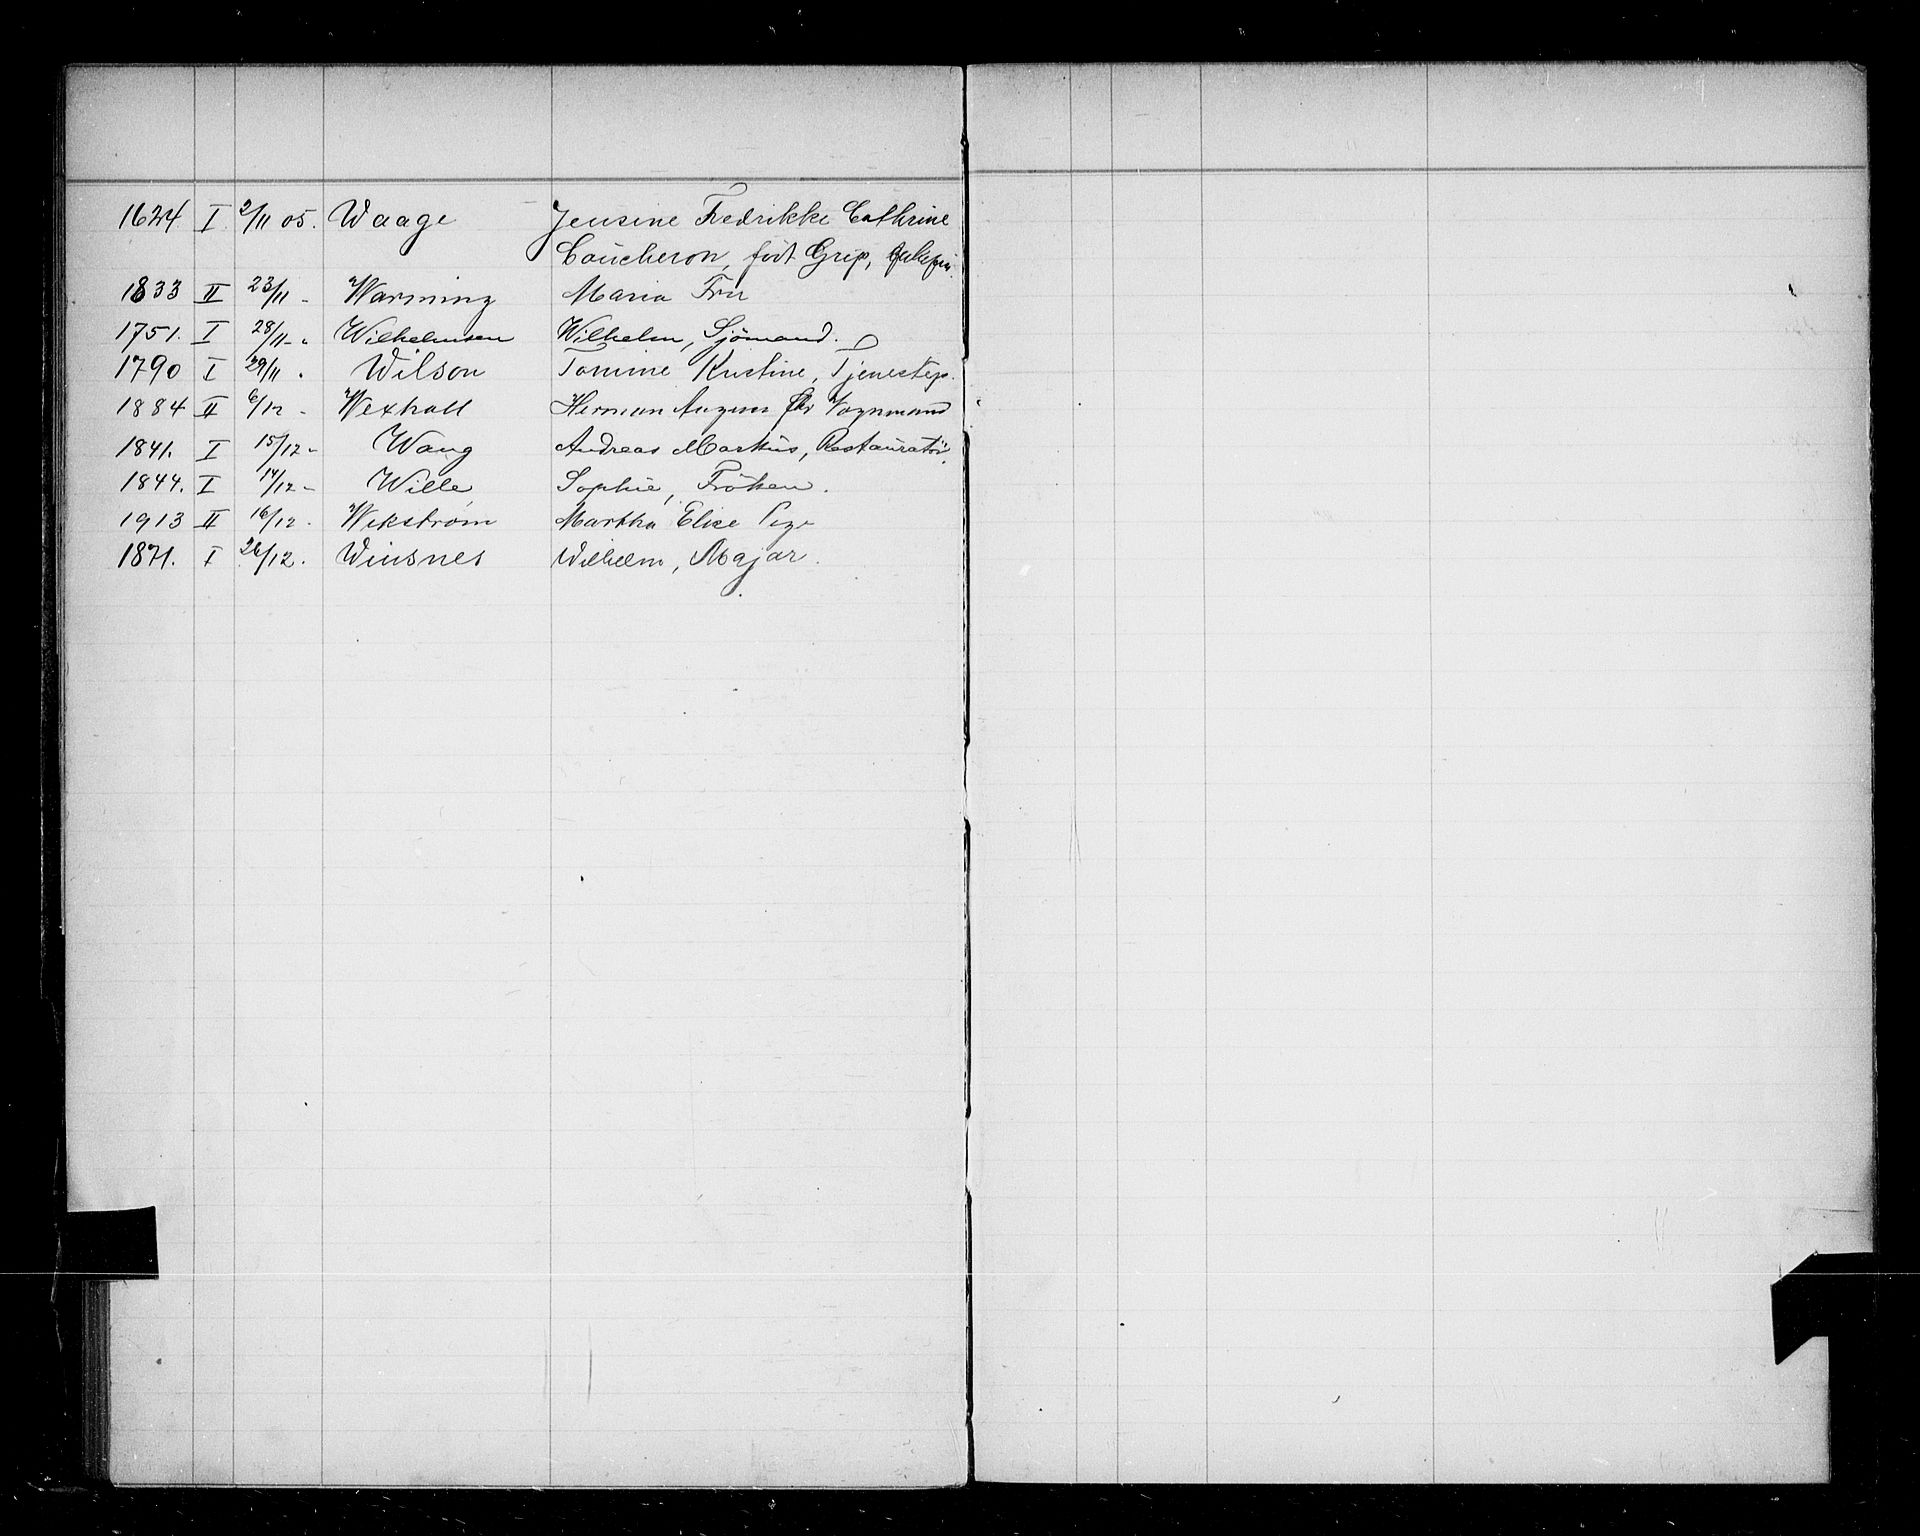 1624 I 2/11 05. Waage Jensine Fredrikke Cathrine
Coucheron, født Grip,
1833 II 23/11 - Warming Maria Fru
1751. I 28/11 - „ Wilhelmsen Wilhelm, Sjömand.
1790 I 29/11 „ Wilson Tomine Kristine, Tjenestep.
1884 II 6/12 - Wexhall Herman August Vognmand
1841. I 15/12 - Wang Andreas Markus, Restauratör.
1844. I 14/12 - Wille Sophie, Fröken.
1913 II 16/12 - Wikstrøm Martha Elise Pige
1871. I 26/12. Winsnes Wilhelm, Major.